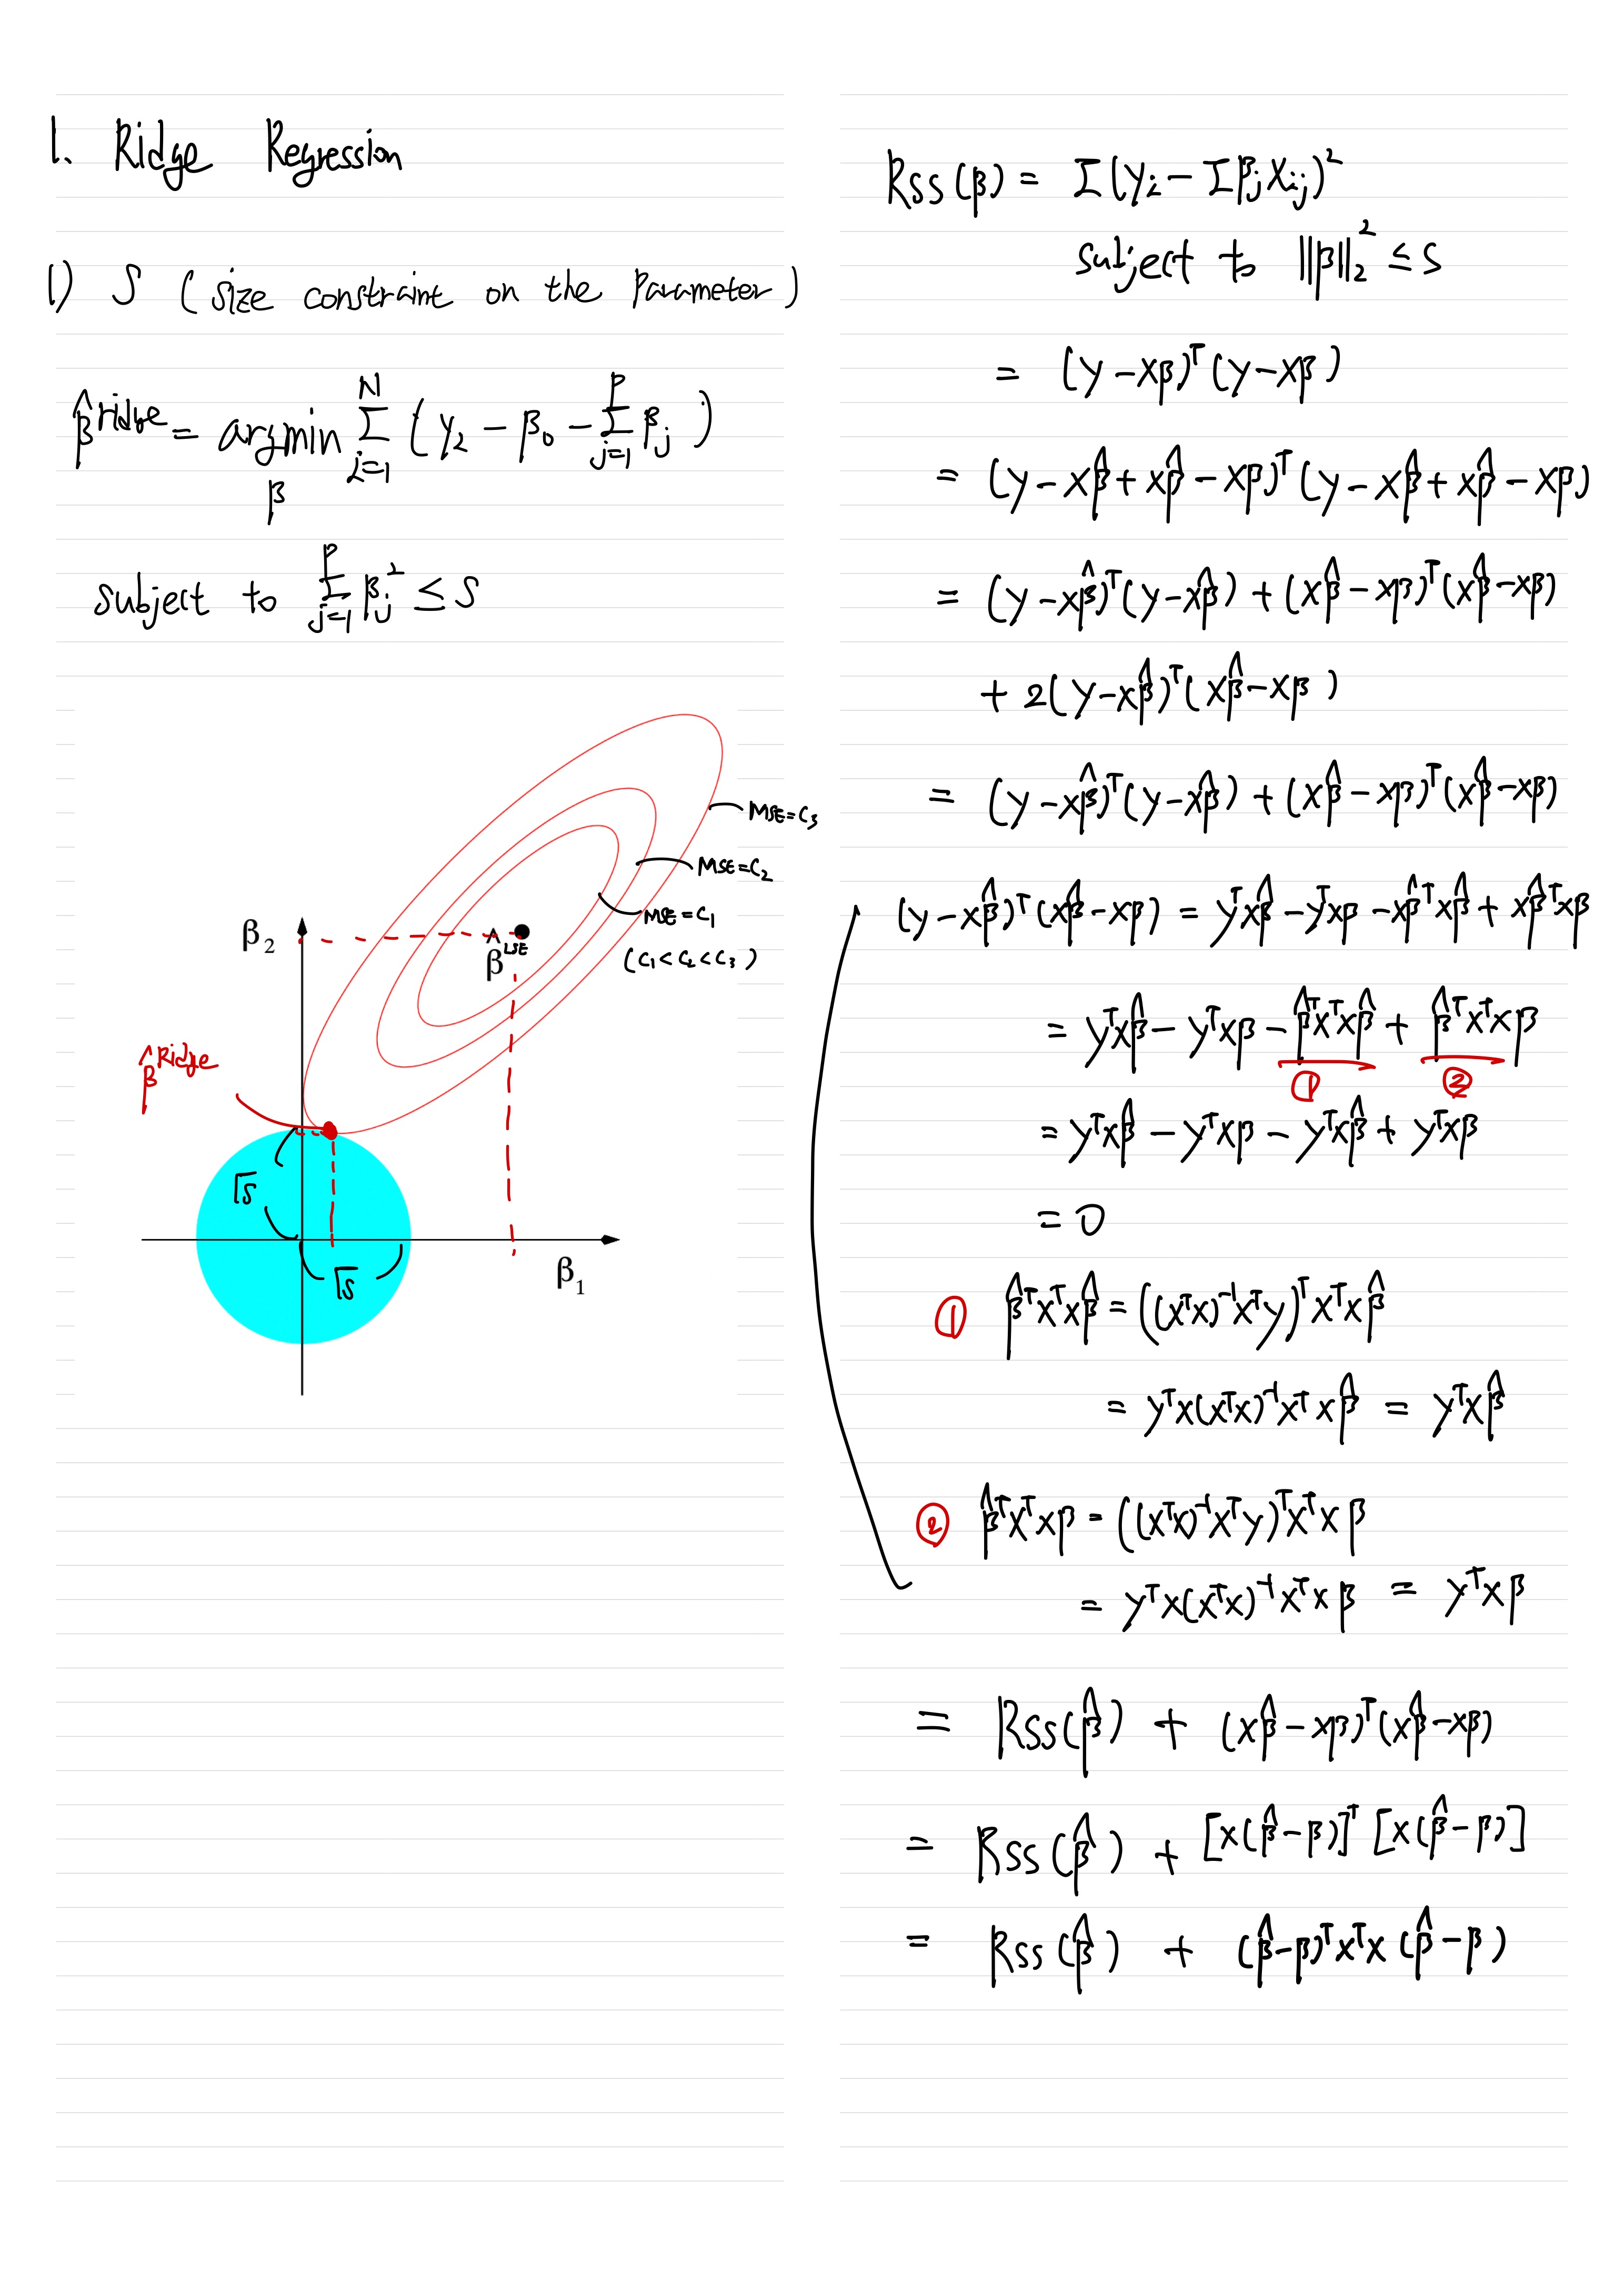 1. Ridge Regression
1) S (size constraint on the parameter)
β̂^ridge = argmin_β Σ_{i=1}^{N} (y₂ − β₀ − Σ_{j=1}^{p} β_j )
subject to Σ_{j=1}^{p} β_j² ≤ S
MSE=C₃
MSE=C₂
MSE=C₁
(C₁<C₂<C₃)
β₂
β̂^LSE
β̂^Ridge
√S
√S
β₁
Rss(β) = Σ(yᵢ − Σβ_j X_ij)²
subject to ||β||₂² ≤ S
= (y − Xβ)ᵀ(y − Xβ)
= (y − Xβ̂ + Xβ̂ − Xβ)ᵀ(y − Xβ̂ + Xβ̂ − Xβ)
= (y − Xβ̂)ᵀ(y − Xβ̂) + (Xβ̂ − Xβ)ᵀ(Xβ̂ − Xβ)
+ 2(y − Xβ̂)ᵀ(Xβ̂ − Xβ)
= (y − Xβ̂)ᵀ(y − Xβ̂) + (Xβ̂ − Xβ)ᵀ(Xβ̂ − Xβ)
(y − Xβ̂)ᵀ(Xβ̂ − Xβ) = yᵀXβ̂ − yᵀXβ − Xβ̂ᵀXβ̂ + Xβ̂ᵀXβ
= yᵀXβ̂ − yᵀXβ − β̂ᵀXᵀXβ̂ + β̂ᵀXᵀXβ
① ②
= yᵀXβ̂ − yᵀXβ − yᵀXβ̂ + yᵀXβ
= 0
① β̂ᵀXᵀXβ̂ = ((XᵀX)⁻¹Xᵀy)ᵀXᵀXβ̂
= yᵀX(XᵀX)⁻¹XᵀXβ̂ = yᵀXβ̂
② β̂ᵀXᵀXβ = ((XᵀX)⁻¹Xᵀy)ᵀXᵀXβ
= yᵀX(XᵀX)⁻¹XᵀXβ = yᵀXβ
= Rss(β̂) + (Xβ̂ − Xβ)ᵀ(Xβ̂ − Xβ)
= Rss(β̂) + [X(β̂ − β)]ᵀ[X(β̂ − β)]
= Rss(β̂) + (β̂ − β)ᵀXᵀX(β̂ − β)